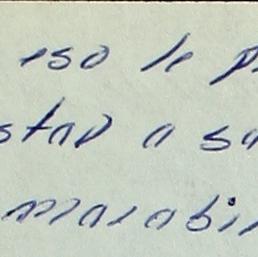 eso le p
stad a sa
marabi